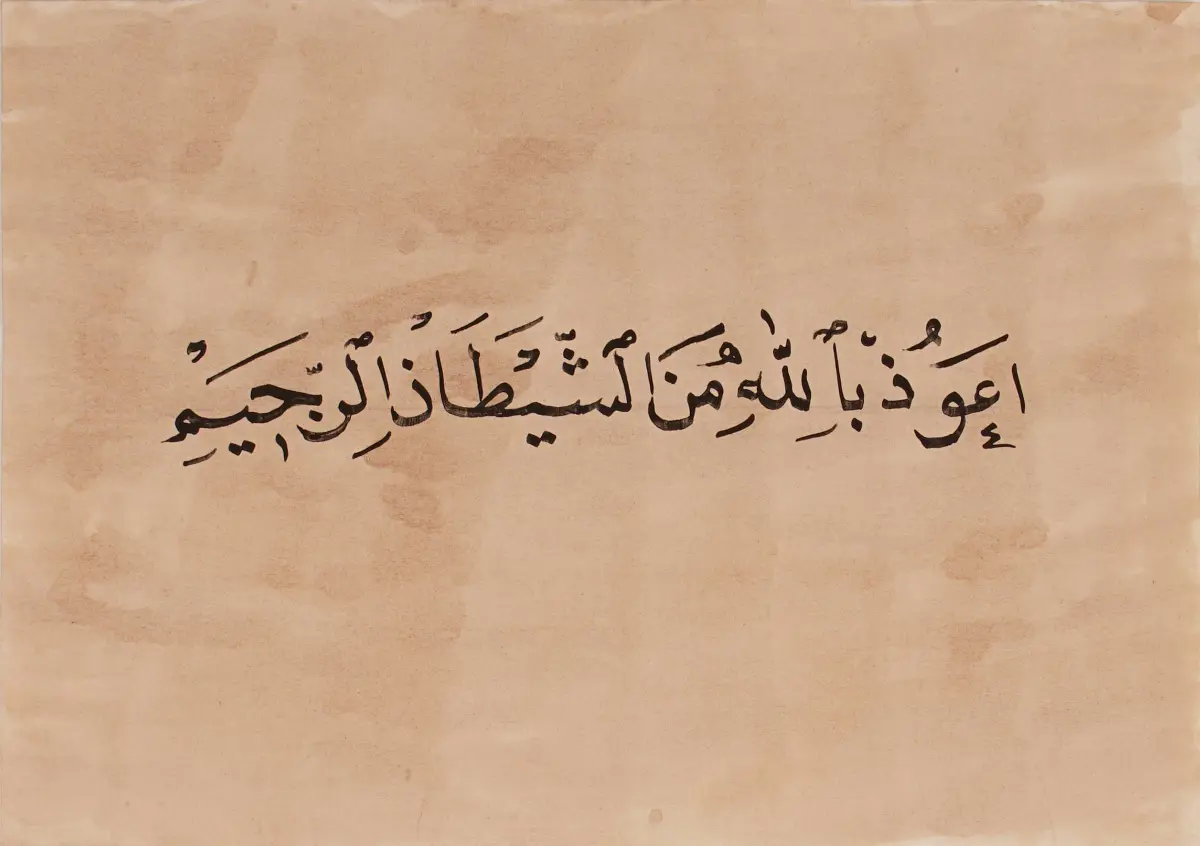 اعَوُذْ بِٱللّٰهِ مُنَ ٱلشَّيْطَانْ اِلرَّجَيْمِ